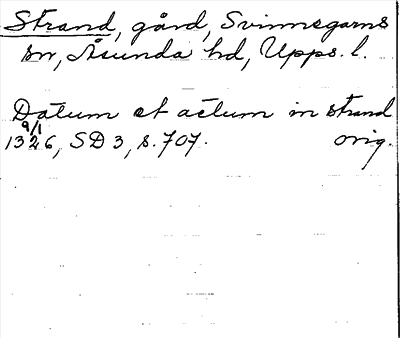 Strand, gård, Svinnegarns
sn, Åsunda hd, Upps. l.
Datum et actum in strand
9/1
1326, SD 3, s. 707. orig.